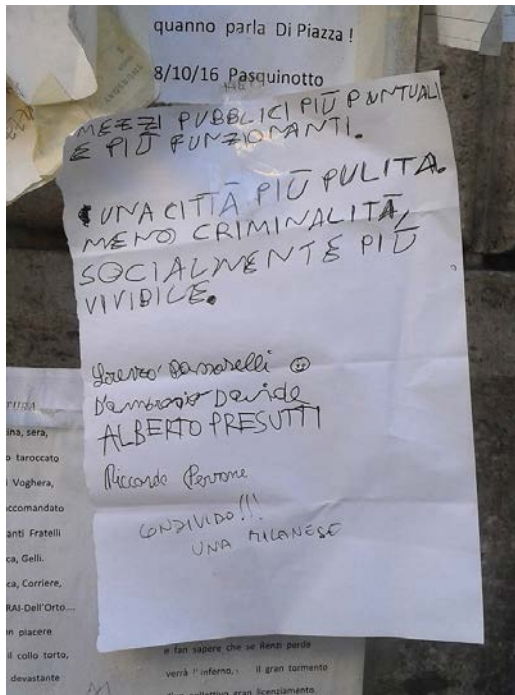 quanno parla Di Piazza !
8/10/16 Pasquinotto
MEZZI PUBBLICI PIÙ PUNTUALI
E PIÙ FUNZIONANTI.
UNA CITTÀ PIÙ PULITA.
MENO CRIMINALITÀ,
SOCIALMENTE PIÙ
VIVIBILE.
Lorenzo Passarelli ☺
D'ambrosio Davide
ALBERTO PRESUTTI
Riccardo Perrone
CONDIVIDO!!!
UNA MILANESE
ina, sera,
taroccato
Voghera,
ccomandato
anti Fratelli
ca, Gelli.
ca, Corriere,
RAI-Dell'Orto...
n piacere
il collo torto,
devastante
e fan sapere che se Renzi perde
verrà l'inferno, il gran tormento
collettivo gran licenziamento.